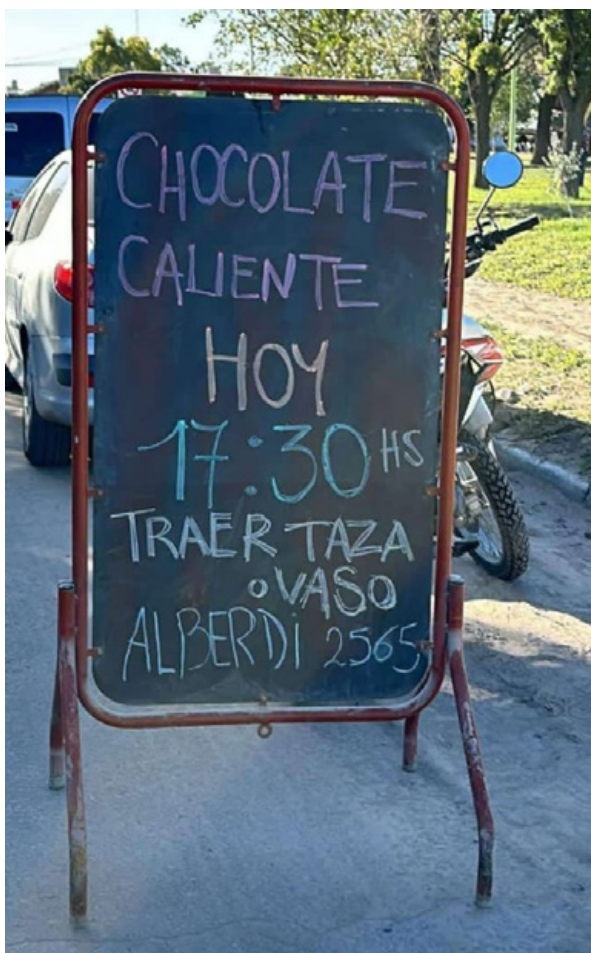 CHOCOLATE
CALIENTE
HOY
17:30 HS
TRAER TAZA
o VASO
ALBERDi 2565